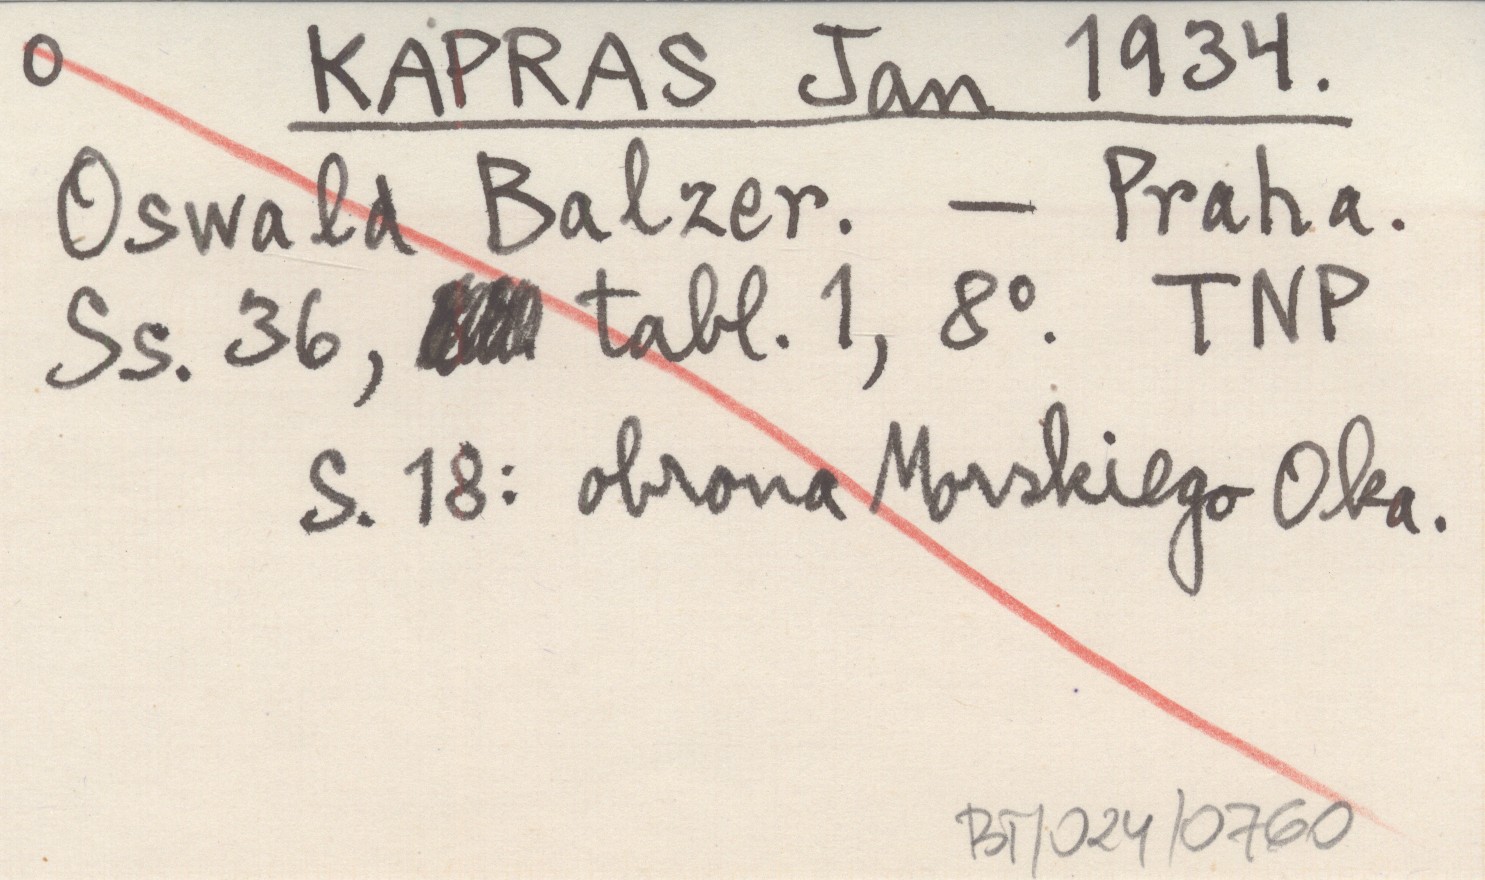 O KAPRAS Jan 1934.
Oswald Balzer. — Praha.
Ss. 36, tabl. 1, 8º. TNP
S. 18: obrona Morskiego Oka.
BT/024/0760